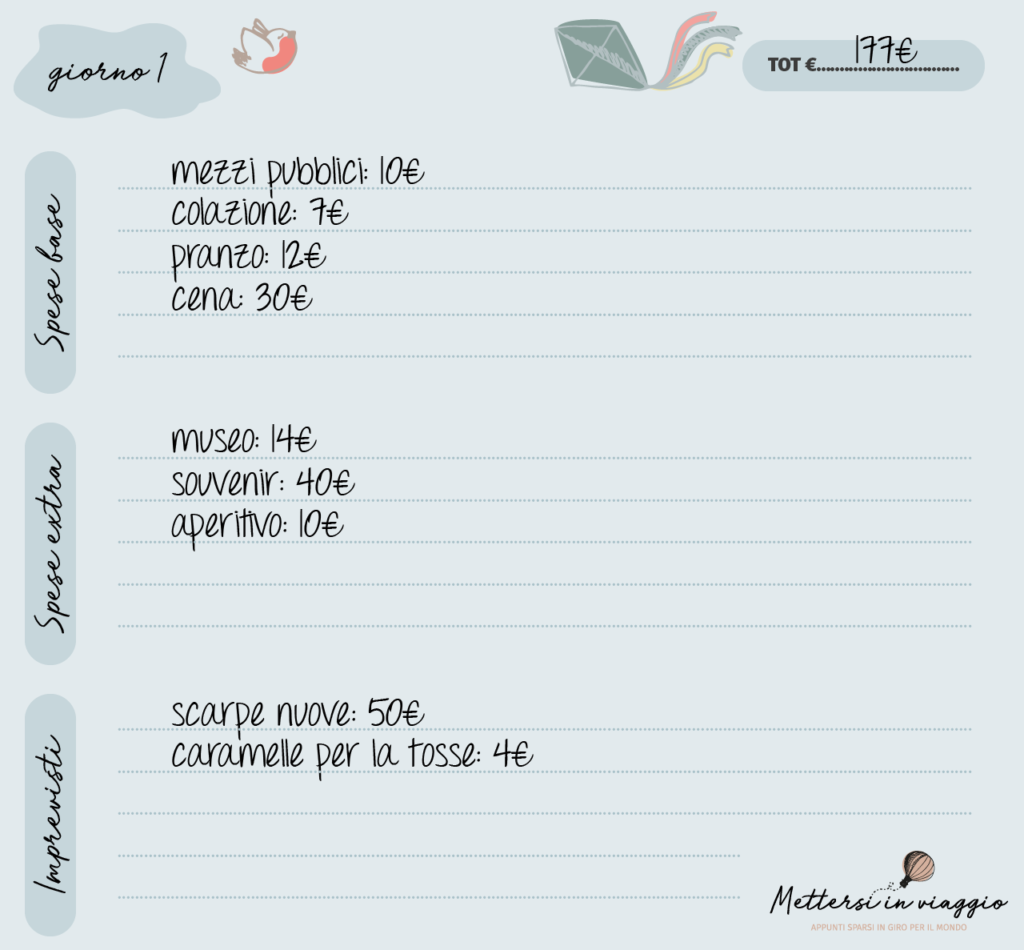 giorno 1
TOT €.................................. 177€
Spese base
mezzi pubblici: 10€
colazione: 7€
pranzo: 12€
cena: 30€
Spese extra
museo: 14€
souvenir: 40€
aperitivo: 10€
Imprevisti
scarpe nuove: 50€
caramelle per la tosse: 4€
Mettersi in viaggio
APPUNTI SPARSI IN GIRO PER IL MONDO